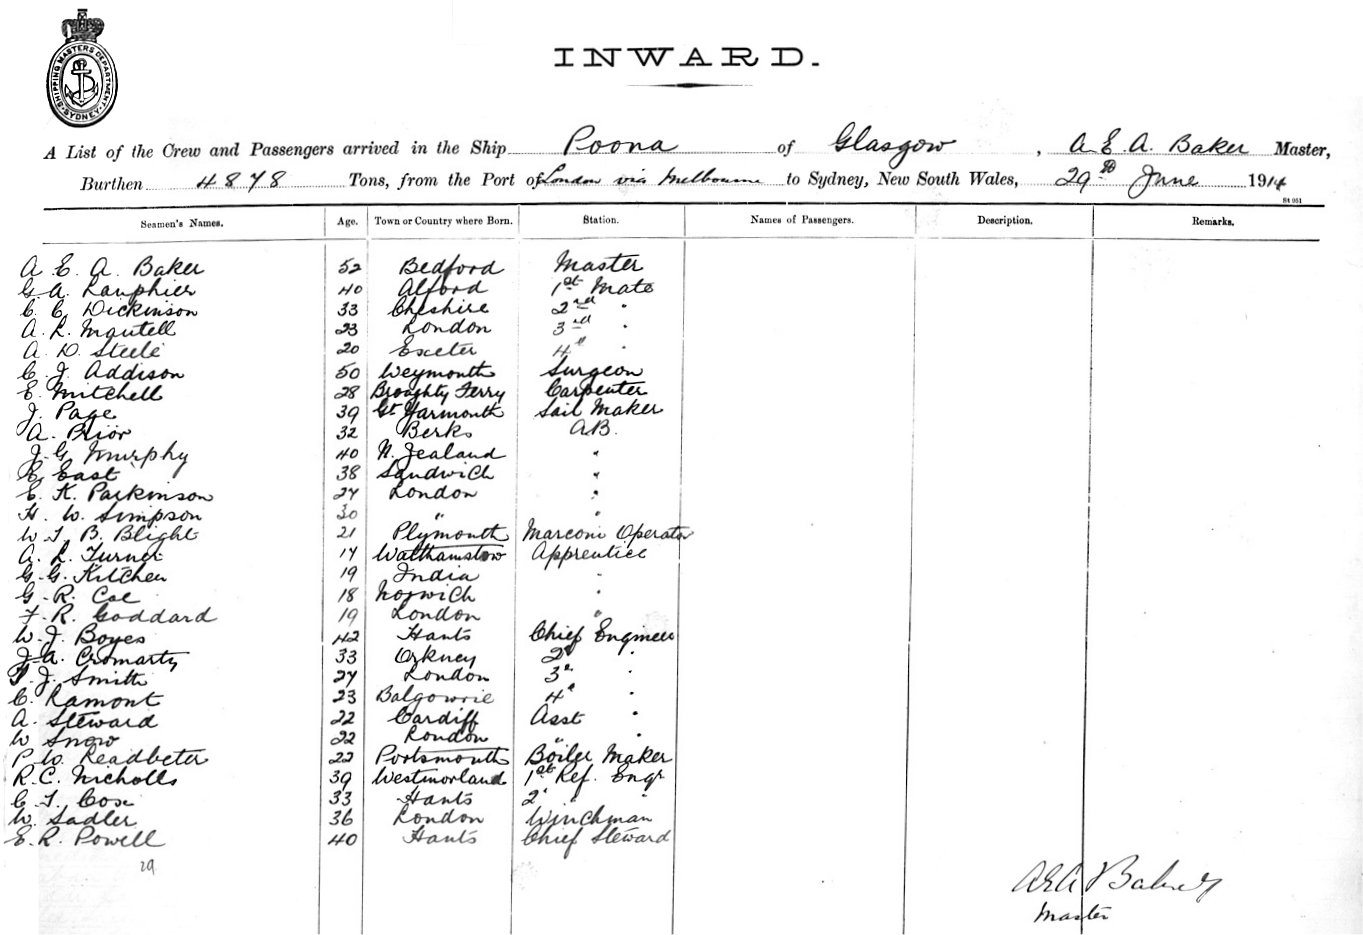 SHIPPING MASTERS DEPARTMENT SYDNEY
INWARD.
A List of the Crew and Passengers arrived in the Ship Poona of Glasgow, A. E. A. Baker Master,
Burthen 4878 Tons, from the Port of London via Melbourne to Sydney, New South Wales, 29th June 1914
St 951
Seamen's Names. Age. Town or Country where Born. Station. Names of Passengers. Description. Remarks.
A. E. A. Baker 52 Bedford Master
G. A. Lanphier 40 Alford 1st Mate
C. C. Dickinson 33 Cheshire 2nd "
A. L. Mantell 23 London 3rd "
A. D. Steele 20 Exeter 4th "
C. J. Addison 50 Weymouth Surgeon
E. Mitchell 28 Broughty Ferry Carpenter
J. Page 39 Gt Yarmouth Sail Maker
A. Prior 32 Berks A.B.
J. G. Murphy 40 N. Zealand "
C. East 38 Sandwich "
E. K. Parkinson 27 London "
H. W. Simpson 30 " "
W. T. B. Blight 21 Plymouth Marconi Operator
A. L. Turner 17 Walthamstow Apprentice
G. G. Kitchen 19 India "
G. R. Coe 18 Norwich "
F. R. Goddard 19 London "
W. J. Boyes 42 Hants Chief Engineer
J. A. Cromarty 33 Orkney 2d "
J. Smith 27 London 3rd "
C. Lamont 23 Balgowrie 4th "
A. Steward 22 Cardiff Asst "
W Snow 22 London " "
P. W. Leadbeter 22 Portsmouth Boiler Maker
R. C. Nicholls 39 Westmorland 1st Ref. Engr
C. T. Cox 33 Hants 2d " "
W. Sadler 36 London Winchman
E. R. Powell 40 Hants Chief Steward
29
A E A Baker
Master